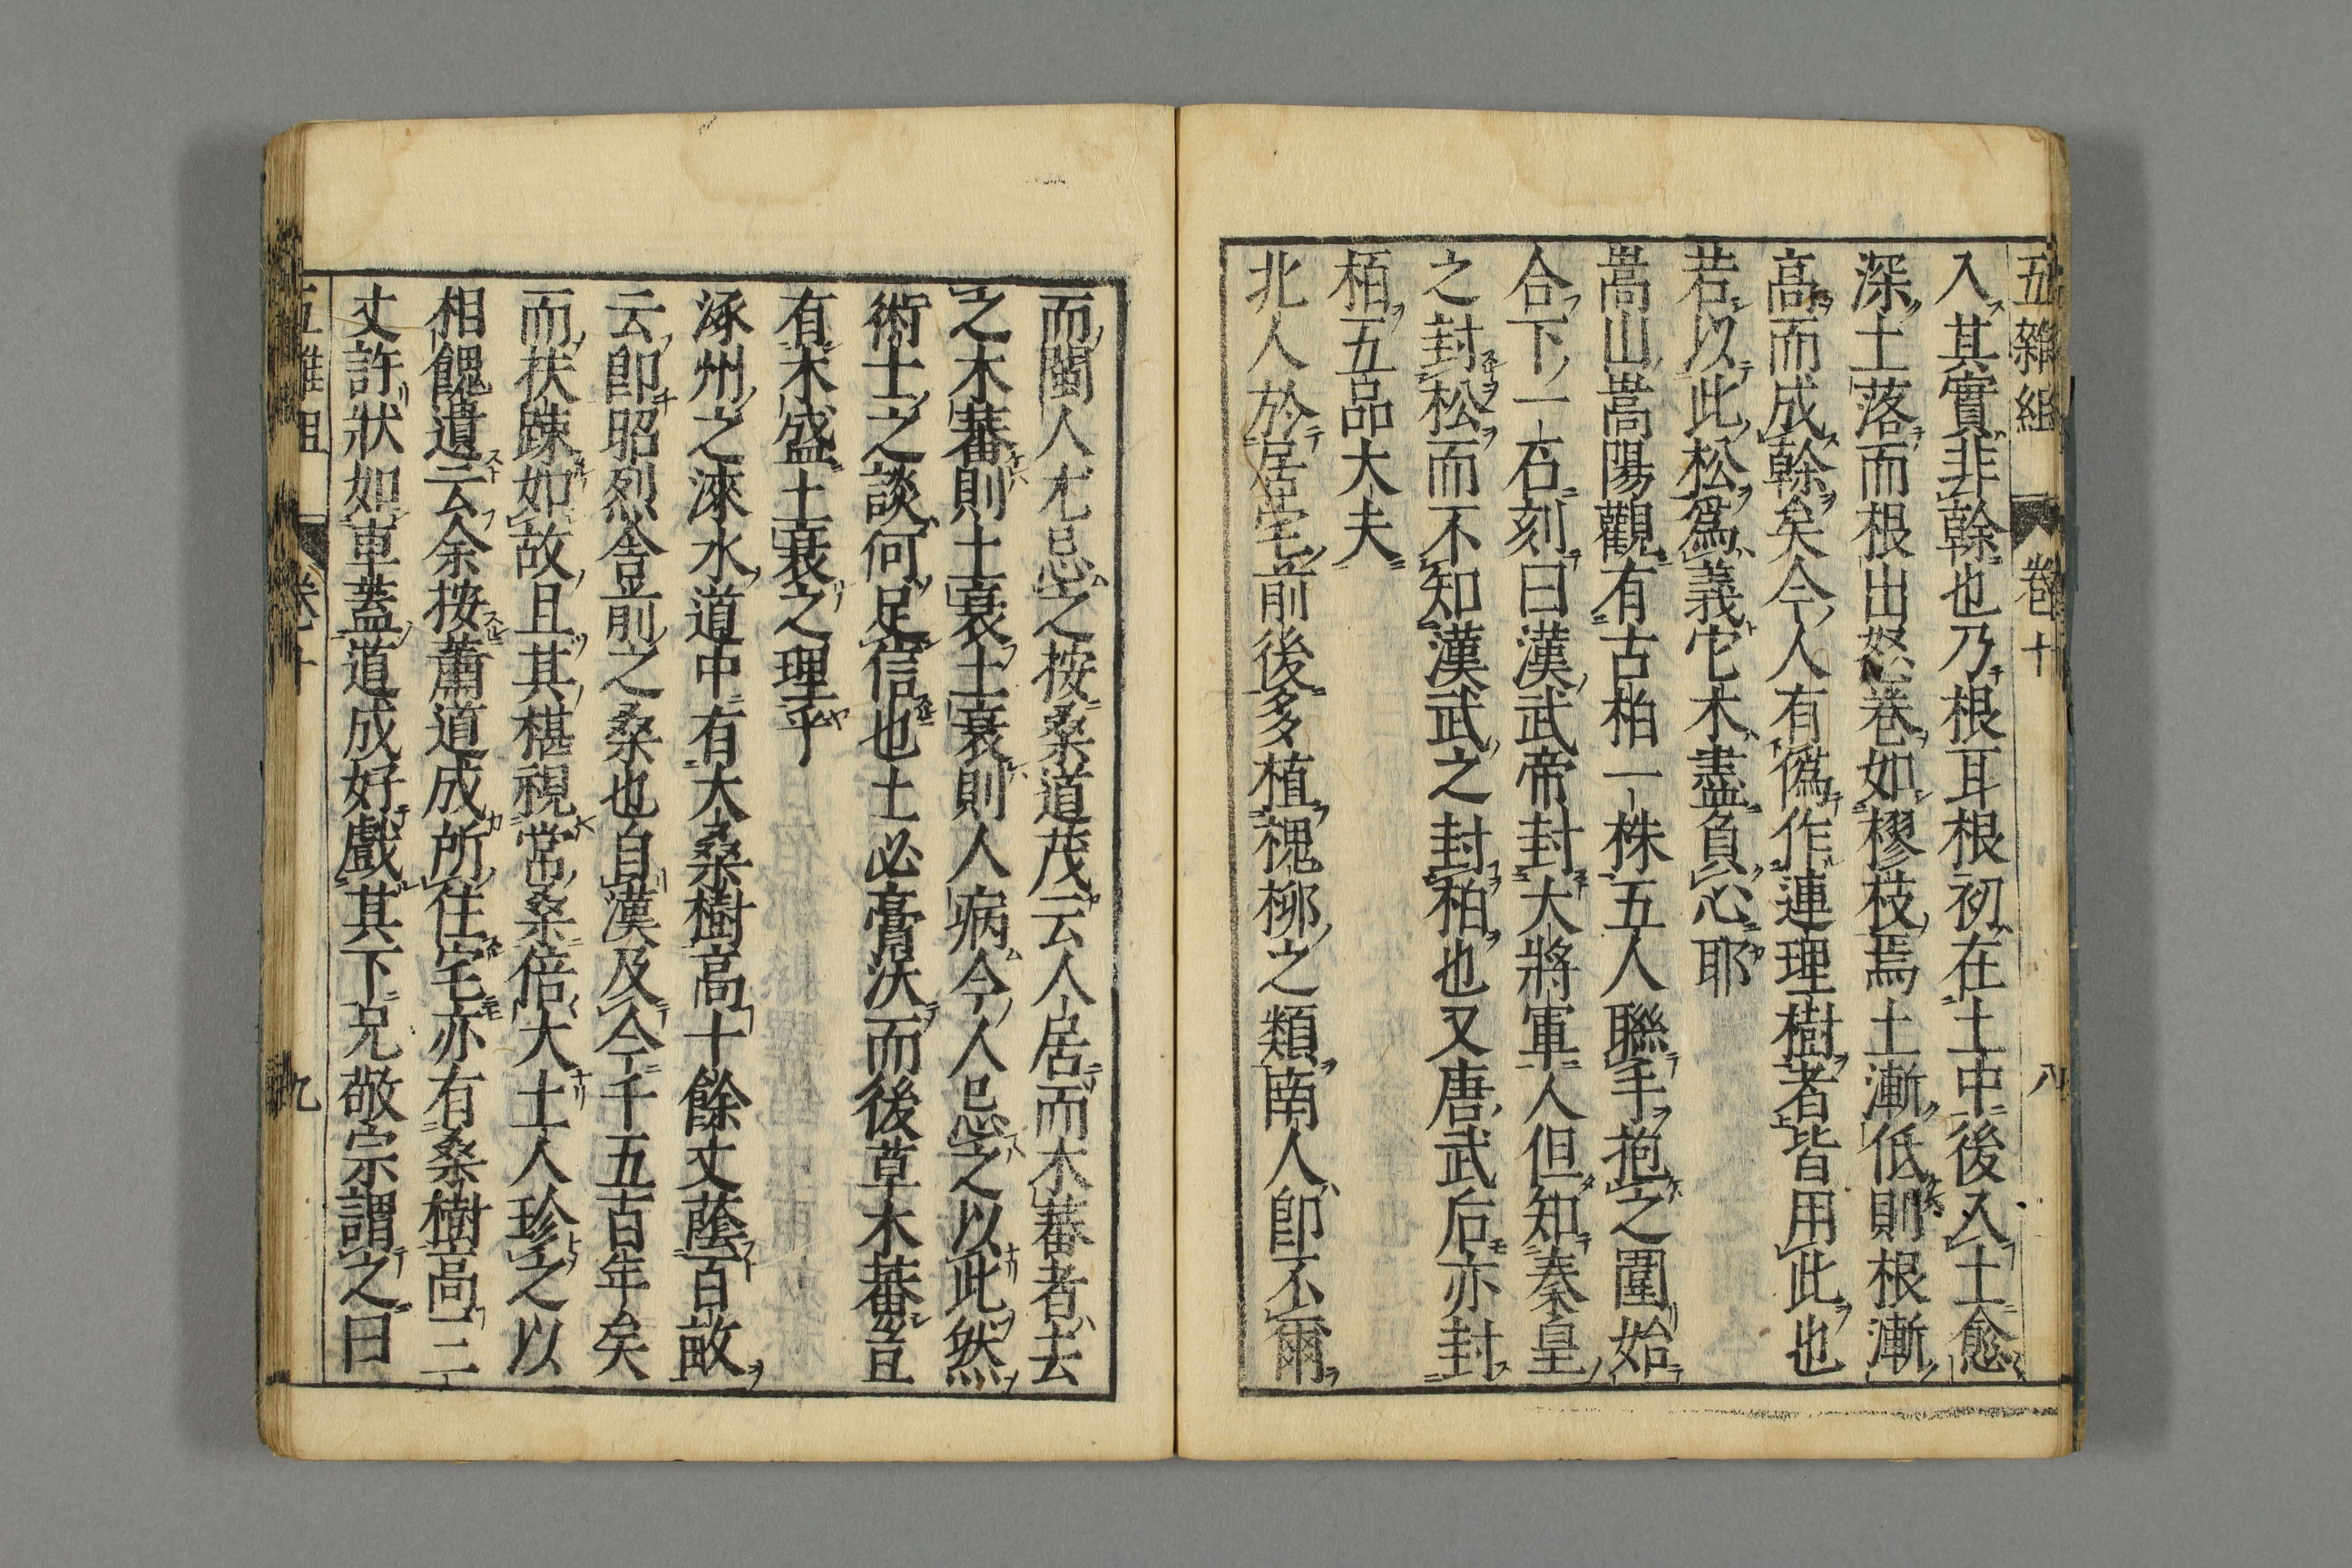 五雜組 卷十 八
入其實非幹也乃根耳根初在土中後入土愈
深土落而根出怒卷如樛枝焉土漸低則根漸
高而成幹矣今人有偽作連理樹者皆用此也
若以此松爲義它木盡負心耶
嵩山嵩陽觀有古柏一株五人聯手抱之圍始
合下一石刻曰漢武帝封大將軍人但知秦皇
之封松而不知漢武之封柏也又唐武后亦封
栢五品大夫
北人於居宅前後多植槐柳之類南人卽不爾
而閩人尤忌之按桑道茂云人居而木蕃者去
之木蕃則土衰土衰則人病今人忌之以此然
術士之談何足信也土必膏沃而後草木蕃豈
有木盛土衰之理乎
涿州之淶水道中有大桑樹高十餘丈蔭百畝
云卽昭烈舍前之桑也自漢及今千五百年矣
而扶踈如故且其椹視常桑倍大土人珍之以
相餽遺云余按蕭道成所住宅亦有桑樹高三
丈許狀如車蓋道成好戲其下兄敬宗謂之曰
五雜組 卷十 九